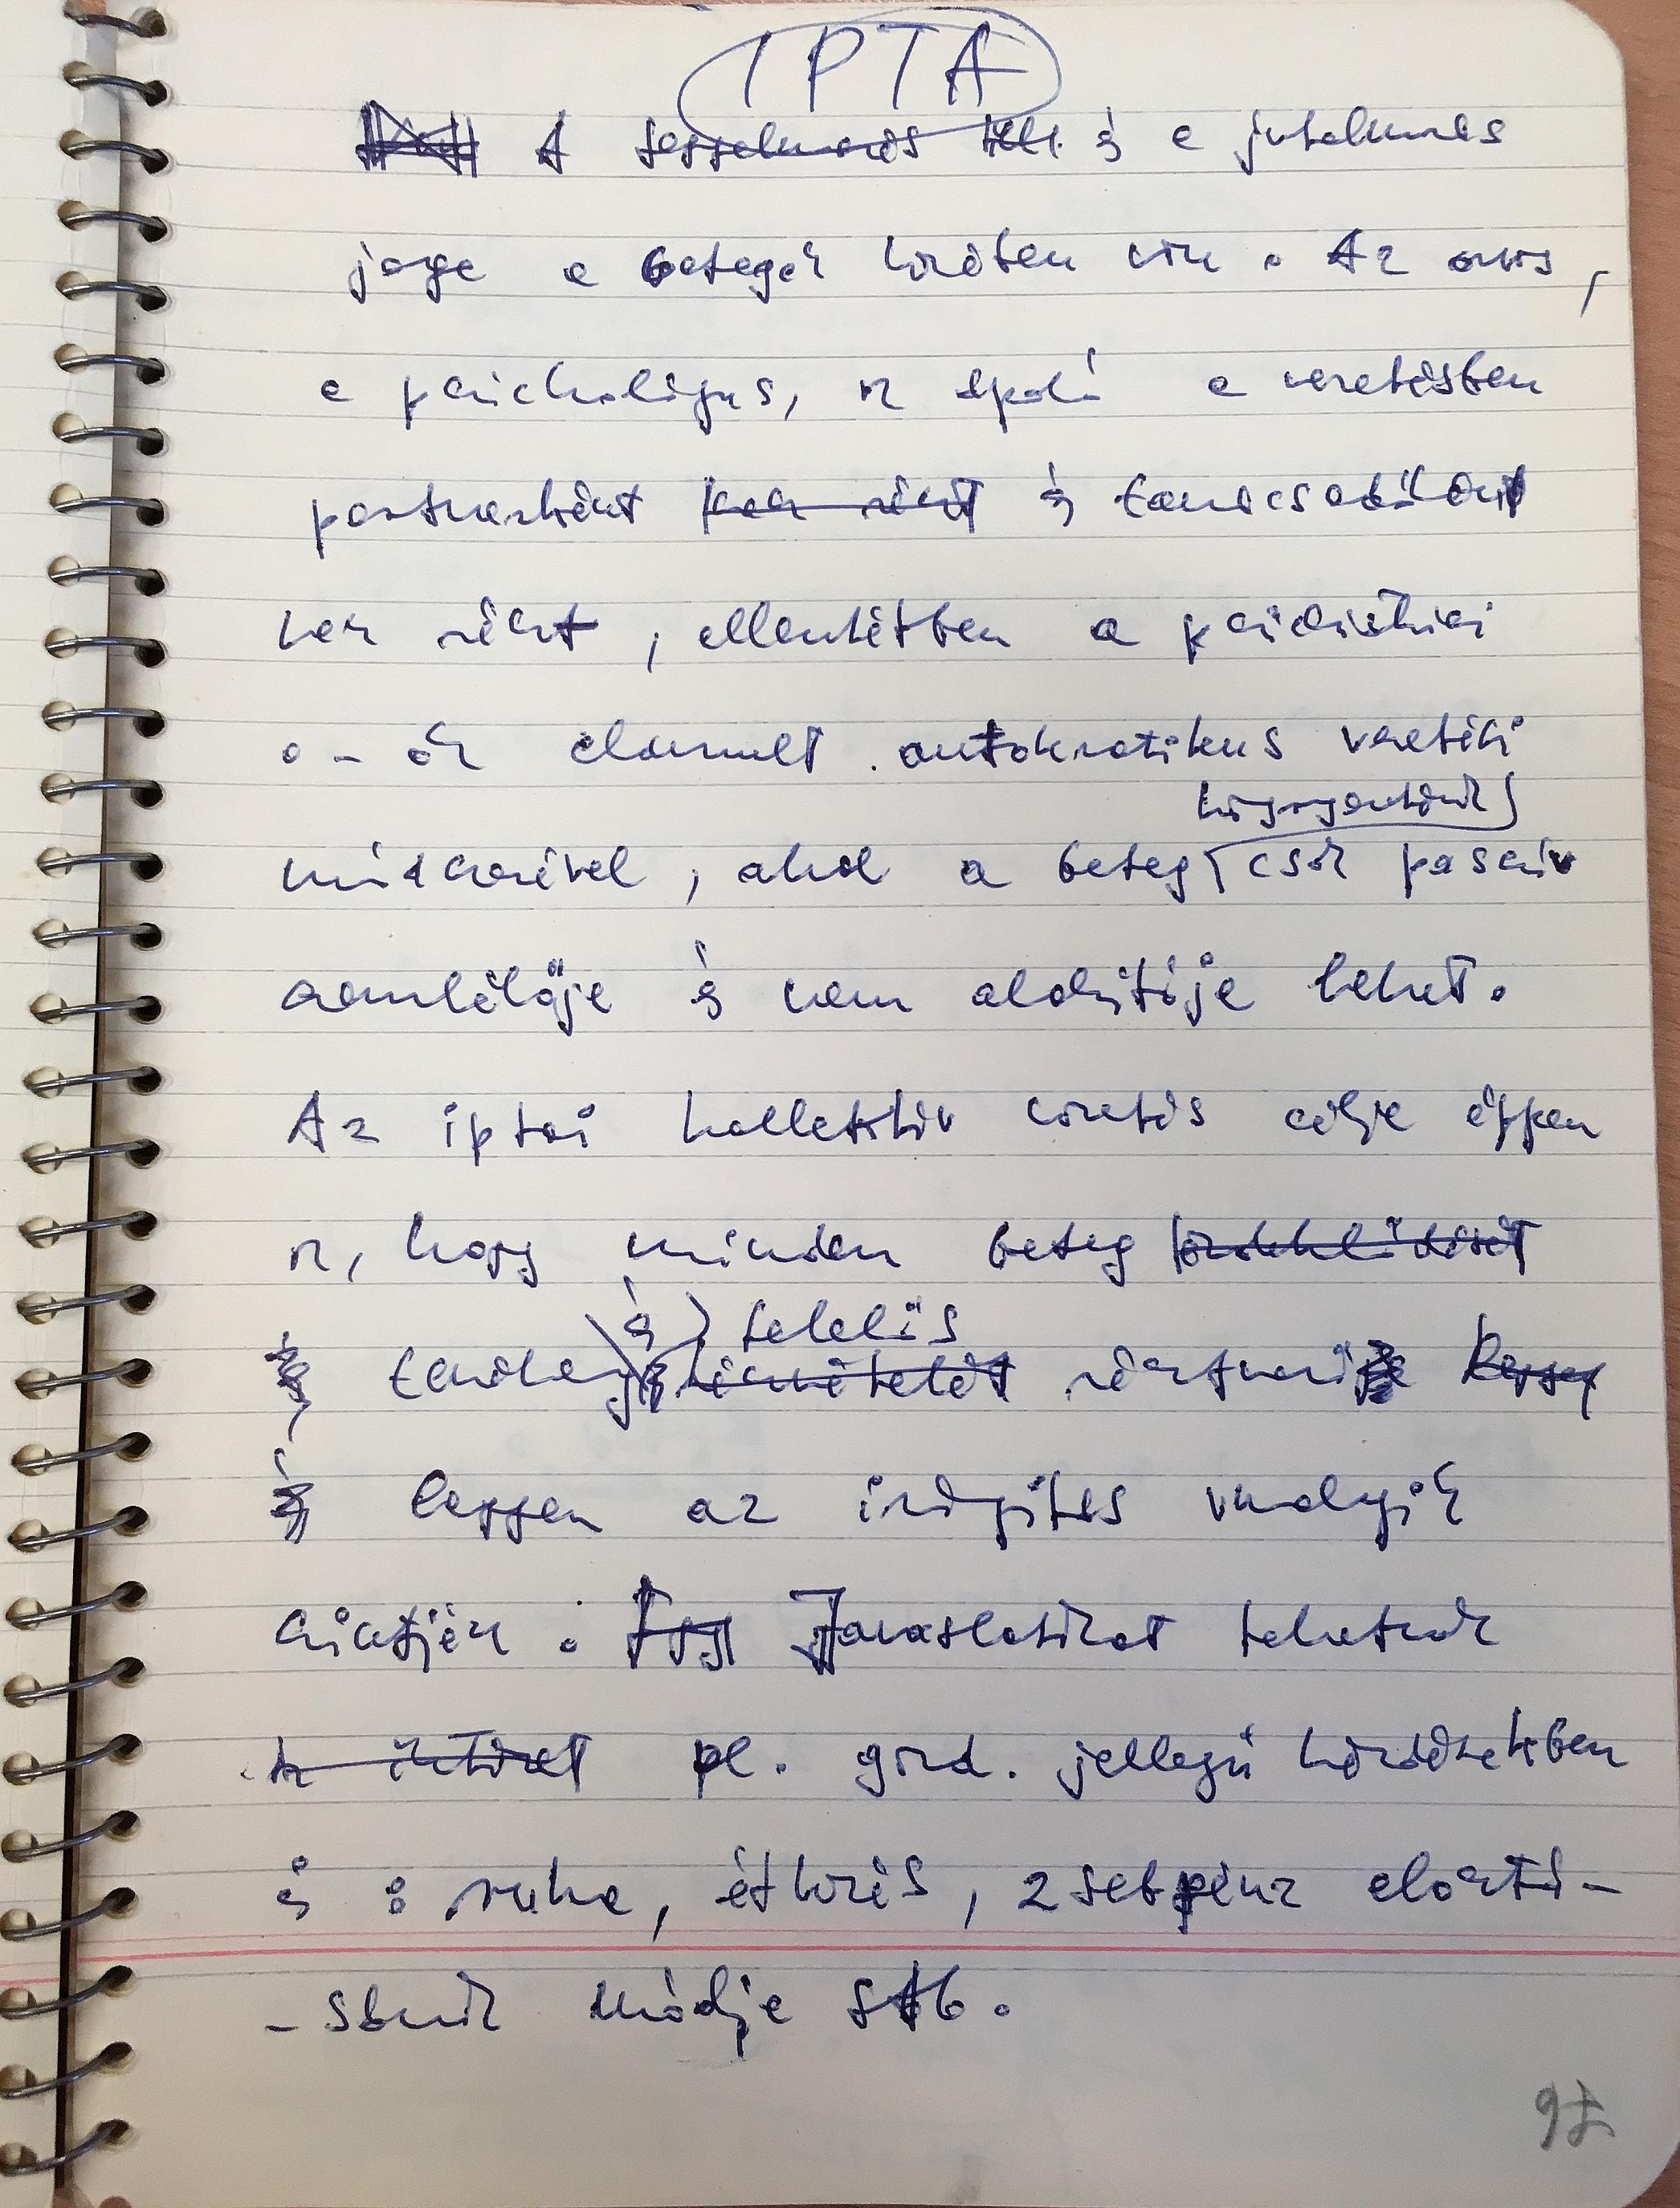 IPTA
A fegyelmezés és a jutalmazás
joga a betegek körében van. Az orvos,
a psichológus, az ápoló a vezetésben
partnerként és tanácsadóként
vesz részt, ellentétben a psichiátriai
o-ok elavult autokratikus vezetési
módszerével, ahol a beteg csak passzív
szemlélője és nem alakítója lehet.
Az iptai kollektív vezetés célja éppen
az, hogy minden beteg
és felelős
tevékeny résztvevője
legyen az irányítás
Javaslatokat tehetnek
pl. gazd. jellegű kérdésekben
és : ruha, étkezés, zsebpénz elosztá-
-sának módja stb.
97